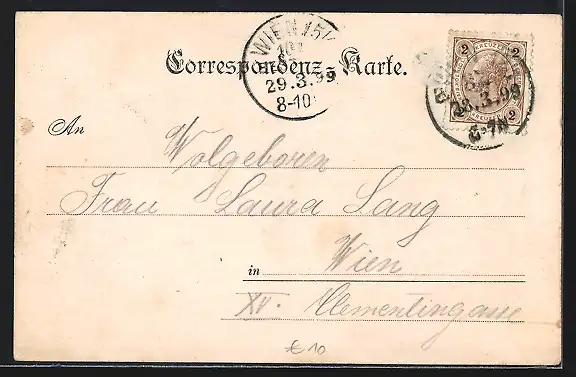 WIEN 15/1
29.3.99
8-10
Correspondenz-Karte.
2 KREUZER 2
28.3.99
2 2
An
Wolgeboren
Frau Laura Lang
in Wien
XV. Clementingasse
€ 10